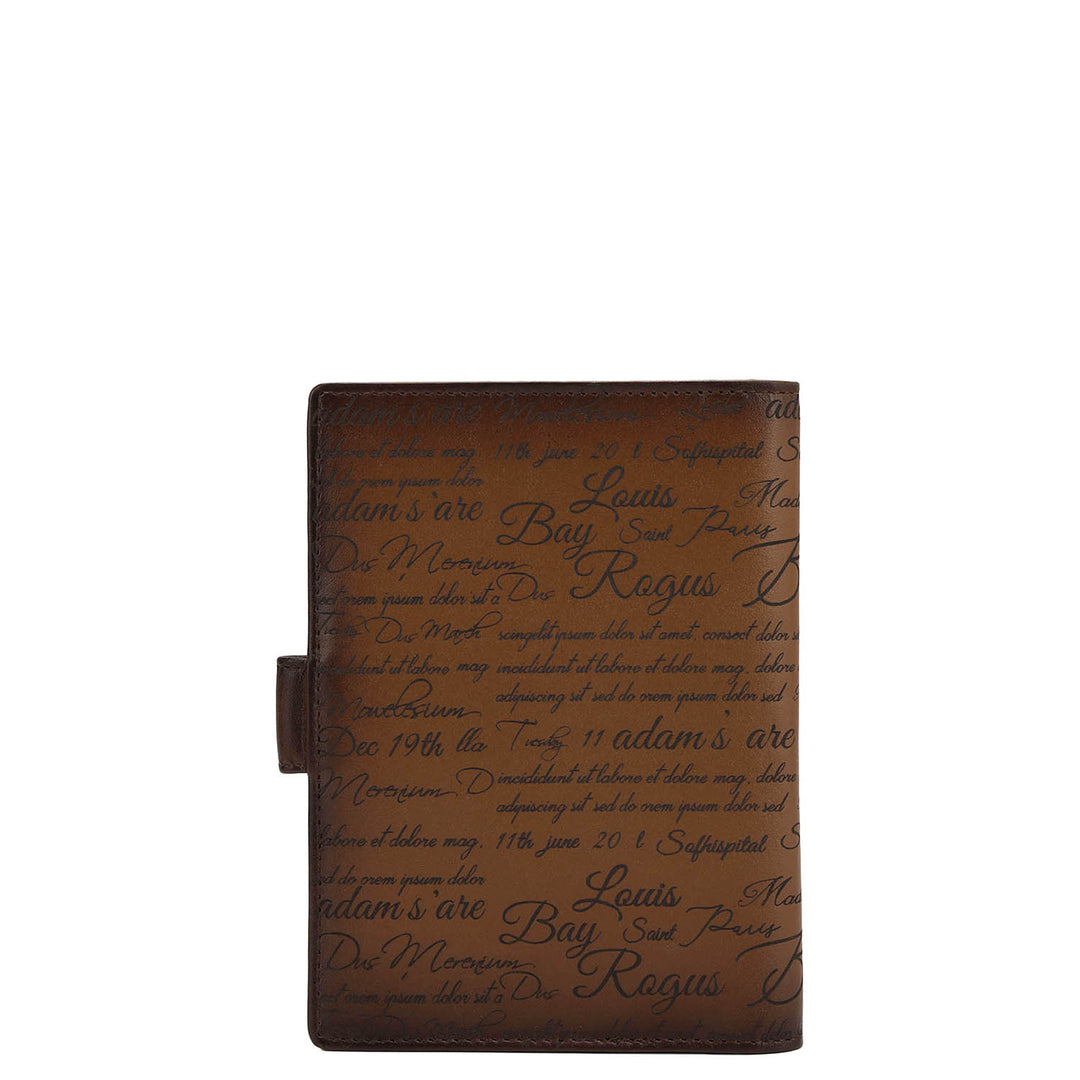 adam's'are
11th june 20 l Safhispital
labore et dolore mag.
sed do orem ipsum dolor
Louis
adam's'are
Bay Saint Paris
Dus Merenium
Rogus
orem ipsum dolor sit a Dus
Dus March scingelit ipsum dolor sit amet, consect dolor
incididunt ut labore mag incididunt ut labore et dolore mag, dolore
adipiscing sit sed do orem ipsum dolor sed
Mavelesium
Dec 19th lla Tuesday 11 adam's'are
Merenium D incididunt ut labore et dolore mag, dolore
adipiscing sit sed do orem ipsum dolor sed
labore et dolore mag. 11th june 20 l Safhispital
sed do orem ipsum dolor
Louis
adam's'are
Bay Saint Paris
Dus Merenium
Rogus
orem ipsum dolor sit a Dus